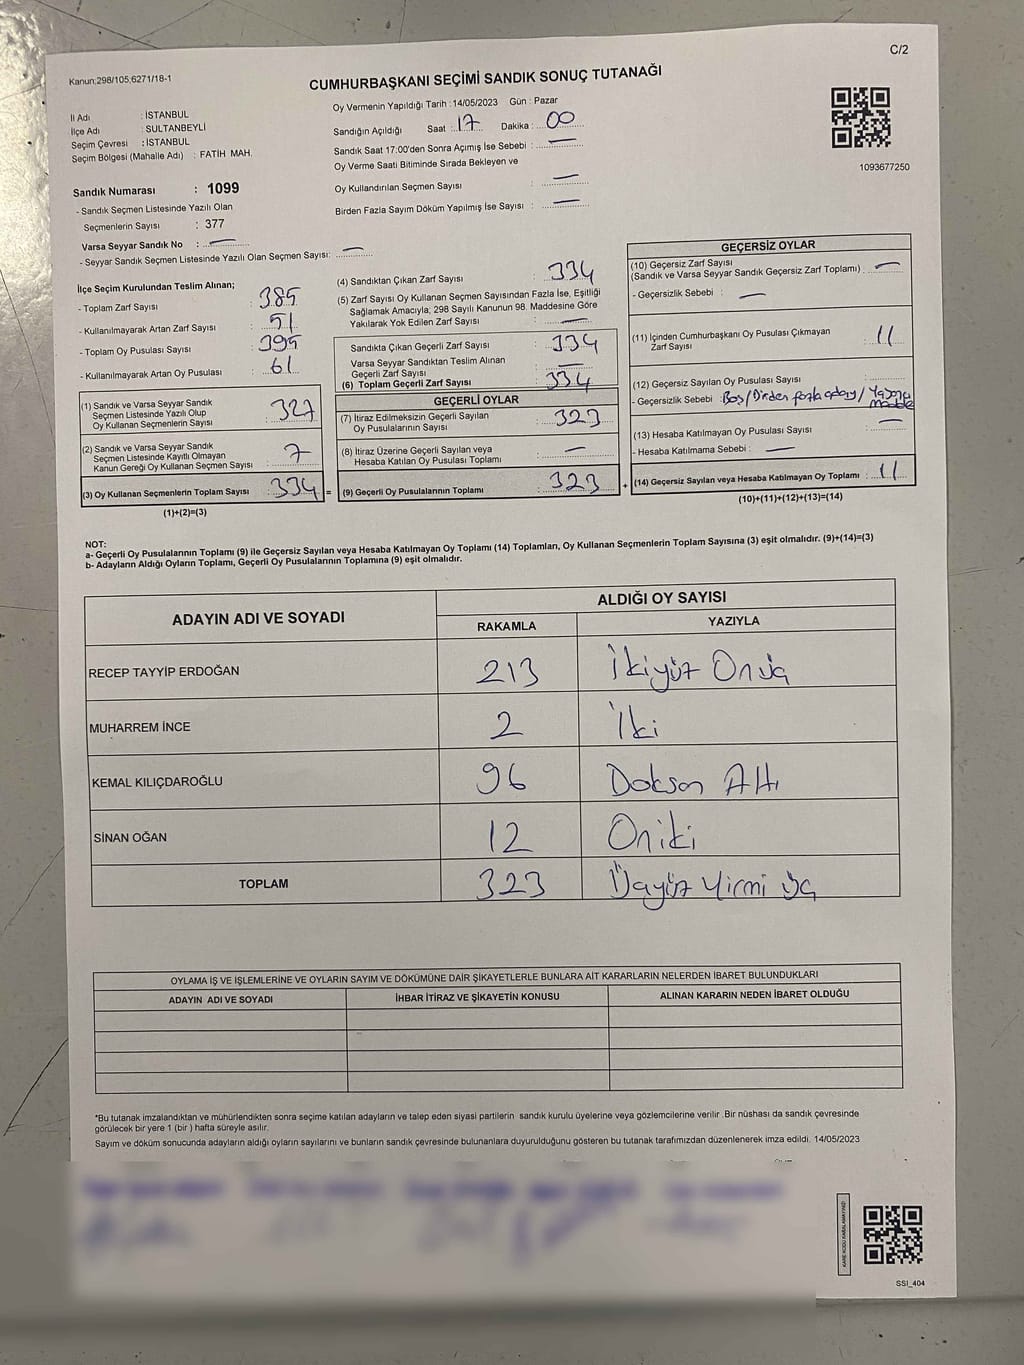 C/2
Kanun:298/105;6271/18-1
CUMHURBAŞKANI SEÇİMİ SANDIK SONUÇ TUTANAĞI
İl Adı : İSTANBUL
İlçe Adı : SULTANBEYLİ
Seçim Çevresi : İSTANBUL
Seçim Bölgesi (Mahalle Adı) : FATİH MAH.
Oy Vermenin Yapıldığı Tarih :14/05/2023 Gün : Pazar
Sandığın Açıldığı Saat : 17 Dakika : 00
Sandık Saat 17:00'den Sonra Açımış İse Sebebi : —
Oy Verme Saati Bitiminde Sırada Bekleyen ve
Oy Kullandırılan Seçmen Sayısı : —
Birden Fazla Sayım Döküm Yapılmış İse Sayısı : —
1093677250
Sandık Numarası : 1099
- Sandık Seçmen Listesinde Yazılı Olan
Seçmenlerin Sayısı : 377
Varsa Seyyar Sandık No : —
- Seyyar Sandık Seçmen Listesinde Yazılı Olan Seçmen Sayısı: —
İlçe Seçim Kurulundan Teslim Alınan;
- Toplam Zarf Sayısı : 385
- Kullanılmayarak Artan Zarf Sayısı : 51
- Toplam Oy Pusulası Sayısı : 395
- Kullanılmayarak Artan Oy Pusulası : 61
(1) Sandık ve Varsa Seyyar Sandık
Seçmen Listesinde Yazılı Olup
Oy Kullanan Seçmenlerin Sayısı : 327
(2) Sandık ve Varsa Seyyar Sandık
Seçmen Listesinde Kayıtlı Olmayan
Kanun Gereği Oy Kullanan Seçmen Sayısı : 7
(3) Oy Kullanan Seçmenlerin Toplam Sayısı : 334 =
(1)+(2)=(3)
(4) Sandıktan Çıkan Zarf Sayısı : 334
(5) Zarf Sayısı Oy Kullanan Seçmen Sayısından Fazla İse, Eşitliği
Sağlamak Amacıyla; 298 Sayılı Kanunun 98. Maddesine Göre
Yakılarak Yok Edilen Zarf Sayısı : —
Sandıkta Çıkan Geçerli Zarf Sayısı : 334
Varsa Seyyar Sandıktan Teslim Alınan
Geçerli Zarf Sayısı : —
(6) Toplam Geçerli Zarf Sayısı : 334
GEÇERLİ OYLAR
(7) İtiraz Edilmeksizin Geçerli Sayılan
Oy Pusulalarının Sayısı : 323
(8) İtiraz Üzerine Geçerli Sayılan veya
Hesaba Katılan Oy Pusulası Toplamı : —
(9) Geçerli Oy Pusulalarının Toplamı : 323 +
GEÇERSİZ OYLAR
(10) Geçersiz Zarf Sayısı
(Sandık ve Varsa Seyyar Sandık Geçersiz Zarf Toplamı) : —
- Geçersizlik Sebebi : —
(11) İçinden Cumhurbaşkanı Oy Pusulası Çıkmayan
Zarf Sayısı : 11
(12) Geçersiz Sayılan Oy Pusulası Sayısı :
- Geçersizlik Sebebi : Boş/Birden fazla aday/
(13) Hesaba Katılmayan Oy Pusulası Sayısı : —
- Hesaba Katılmama Sebebi : —
(14) Geçersiz Sayılan veya Hesaba Katılmayan Oy Toplamı : 11
(10)+(11)+(12)+(13)=(14)
NOT:
a- Geçerli Oy Pusulalarının Toplamı (9) ile Geçersiz Sayılan veya Hesaba Katılmayan Oy Toplamı (14) Toplamları, Oy Kullanan Seçmenlerin Toplam Sayısına (3) eşit olmalıdır. (9)+(14)=(3)
b- Adayların Aldığı Oyların Toplamı, Geçerli Oy Pusulalarının Toplamına (9) eşit olmalıdır.
ADAYIN ADI VE SOYADI ALDIĞI OY SAYISI
RAKAMLA YAZIYLA
RECEP TAYYİP ERDOĞAN 213 İkiyüz Onüç
MUHARREM İNCE 2 İki
KEMAL KILIÇDAROĞLU 96 Doksan Altı
SİNAN OĞAN 12 Oniki
TOPLAM 323 Üçyüz Yirmi Üç
OYLAMA İŞ VE İŞLEMLERİNE VE OYLARIN SAYIM VE DÖKÜMÜNE DAİR ŞİKAYETLERLE BUNLARA AİT KARARLARIN NELERDEN İBARET BULUNDUKLARI
ADAYIN ADI VE SOYADI İHBAR İTİRAZ VE ŞİKAYETİN KONUSU ALINAN KARARIN NEDEN İBARET OLDUĞU
*Bu tutanak imzalandıktan ve mühürlendikten sonra seçime katılan adayların ve talep eden siyasi partilerin sandık kurulu üyelerine veya gözlemcilerine verilir. Bir nüshası da sandık çevresinde
görülecek bir yere 1 (bir) hafta süreyle asılır.
Sayım ve döküm sonucunda adayların aldığı oyların sayılarını ve bunların sandık çevresinde bulunanlara duyurulduğunu gösteren bu tutanak tarafımızdan düzenlenerek imza edildi. 14/05/2023
SSI_404